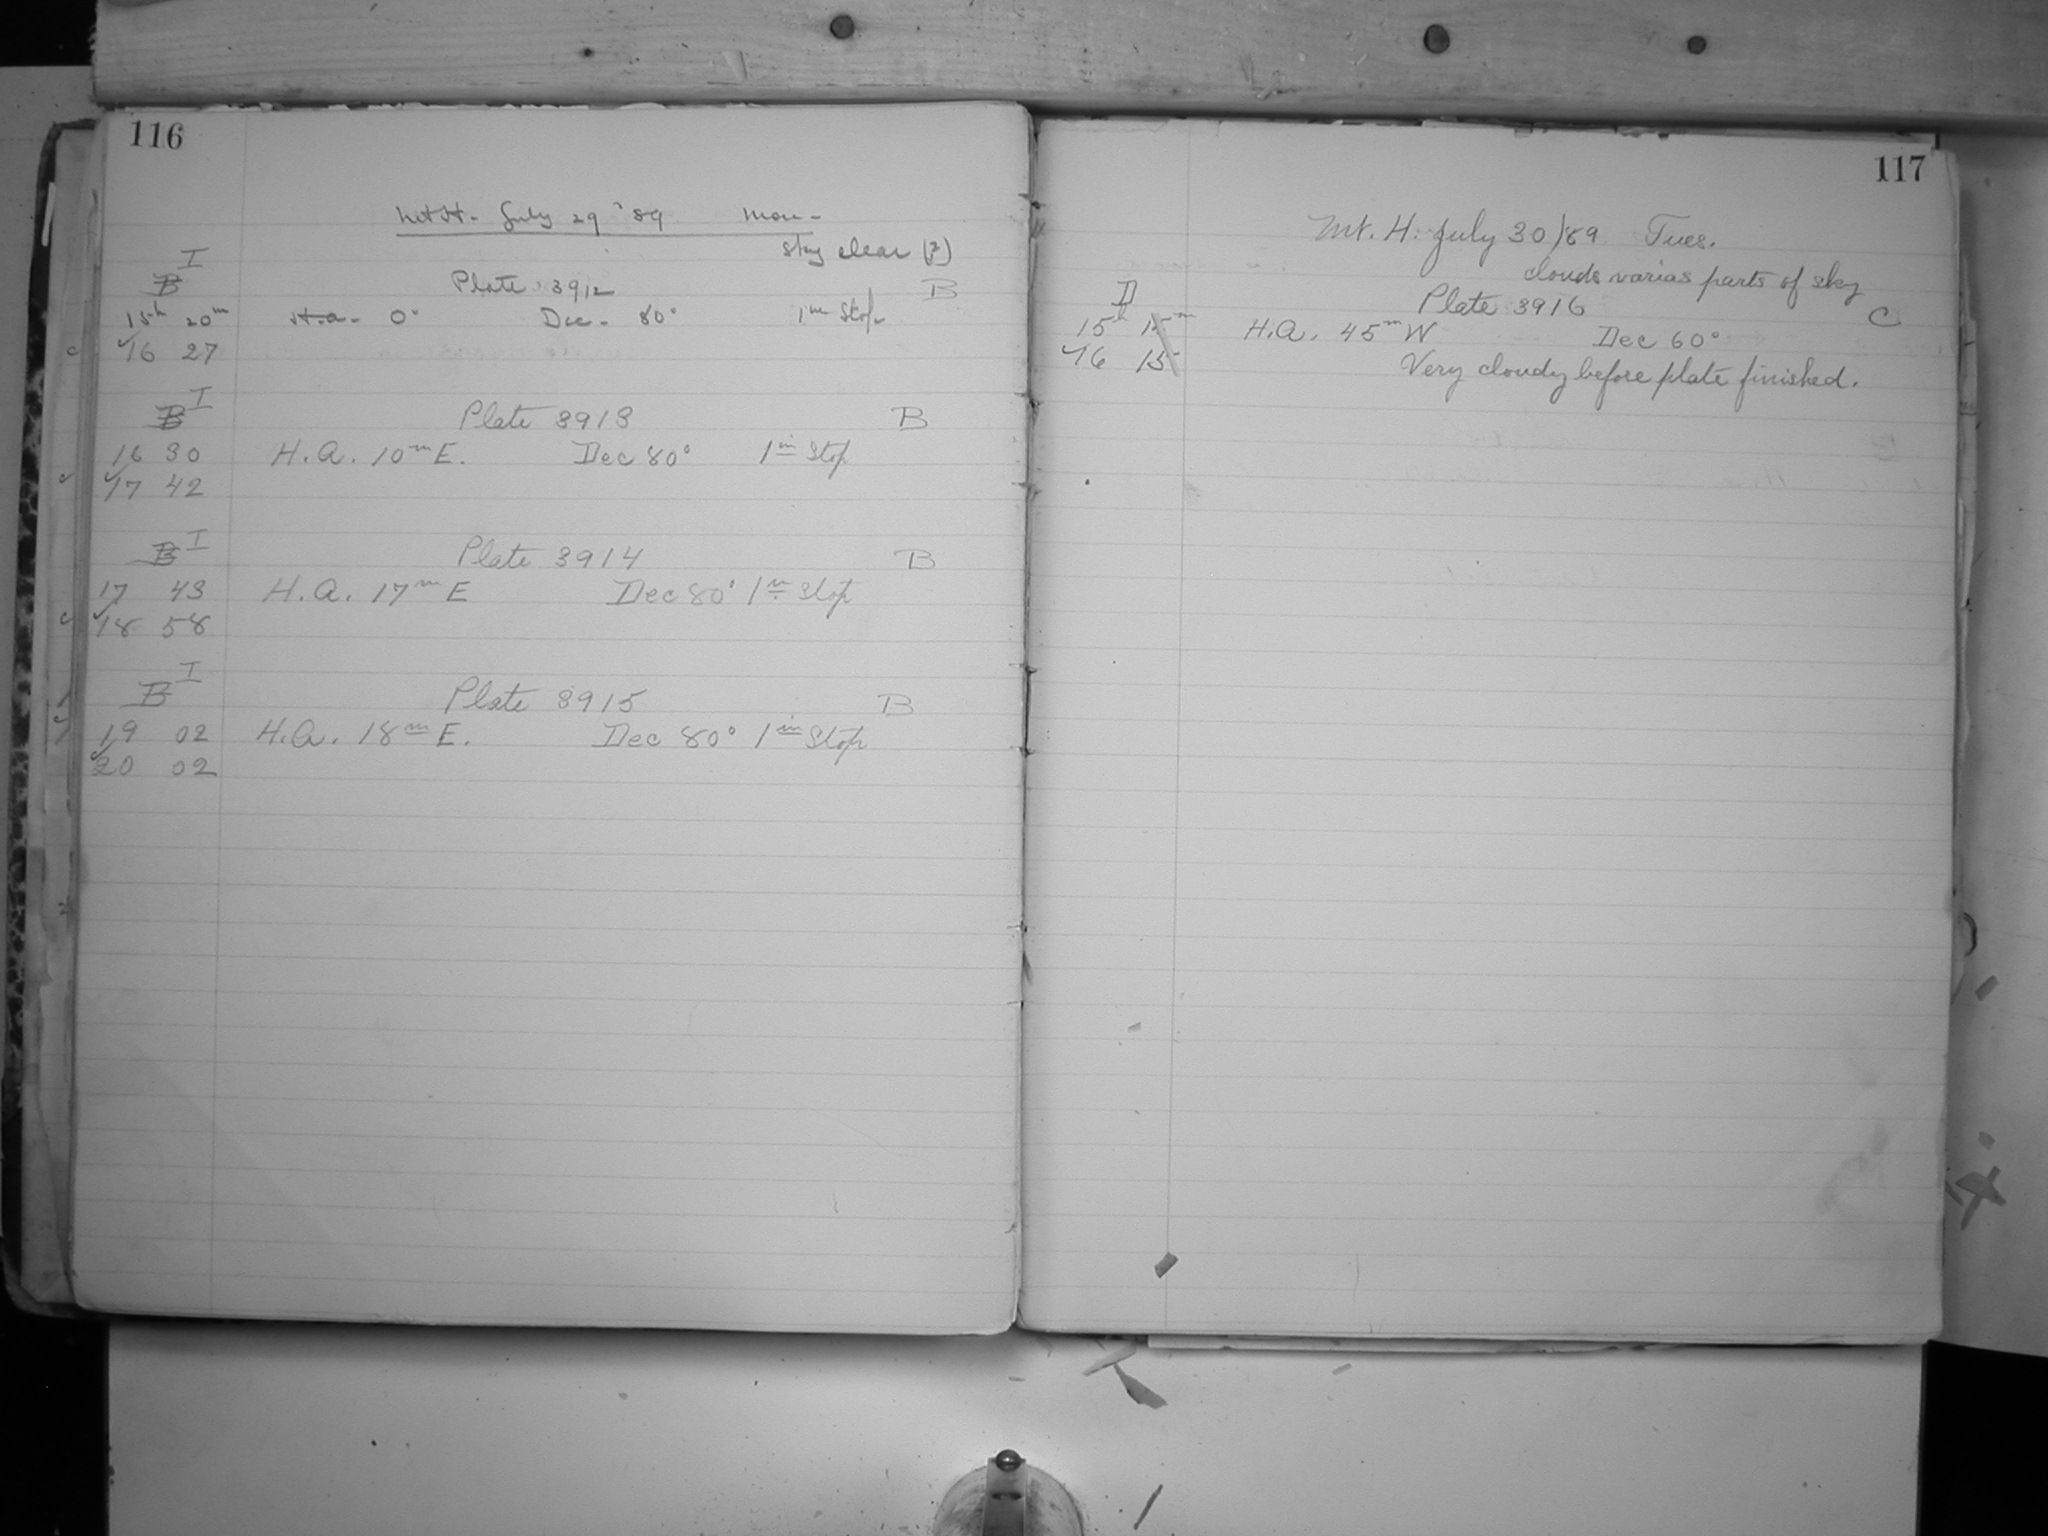 116
Mt H. July 29 '89 Mon.
sky clear (?)
I
B Plate 3912 B
15h 20m H.A. 0° Dec. 80° 1in Stop
16 27
I
B Plate 3913 B
16 30 H.A. 10m E. Dec 80° 1in Stop
17 42
I
B Plate 3914 B
17 43 H.A. 17m E Dec 80° 1in Stop
18 58
I
B Plate 3915 B
19 02 H.A. 18m E. Dec 80° 1in Stop
20 02
117
Mt. H. July 30/89 Tues.
clouds varias parts of sky
D Plate 3916 C
15h 15m H.A. 45m W Dec 60°
16 15
Very cloudy before plate finished.